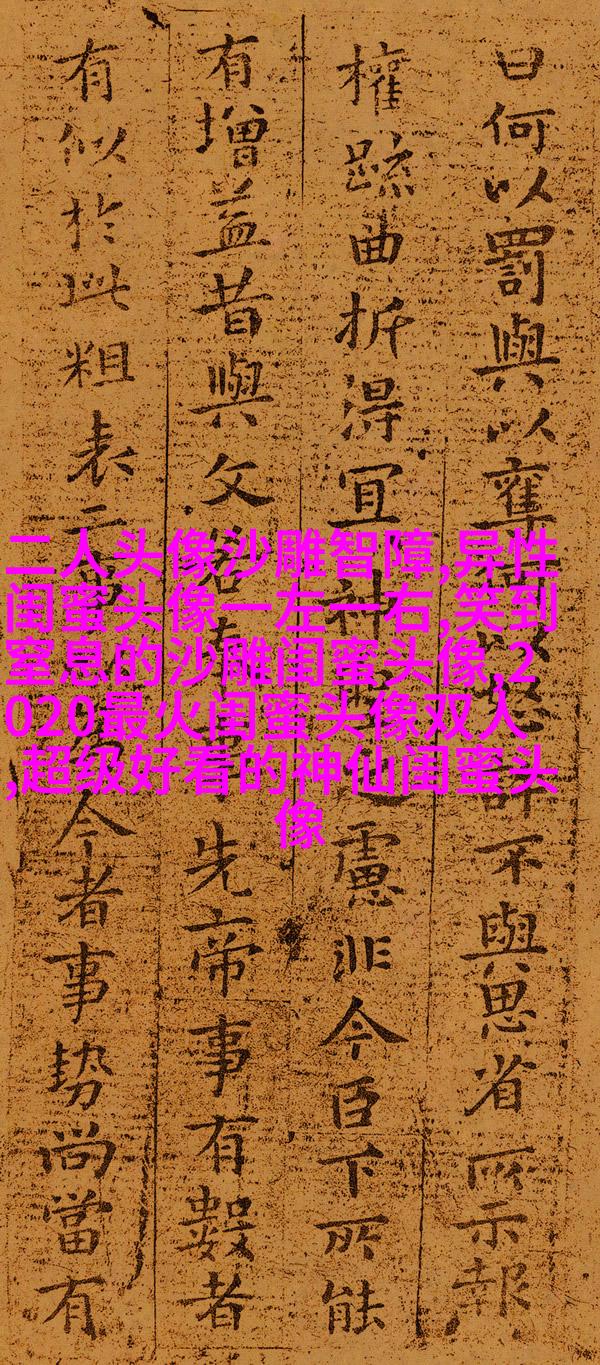 曰何以罰與以奪何以怒許不與思省所示報
權疏曲折得宜神聖之慮非今臣下所能
有增益昔與文若奉事先帝事有數者
有似於此粗表二事以為今者事勢尚當有
二人头像沙雕智障,异性
闺蜜头像一左一右,笑到
窒息的沙雕闺蜜头像,2
020最火闺蜜头像双人
,超级好看的神仙闺蜜头
像